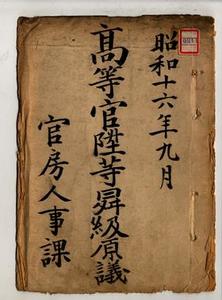 昭和十六年九月
高等官陞等昇級原議
官房人事課